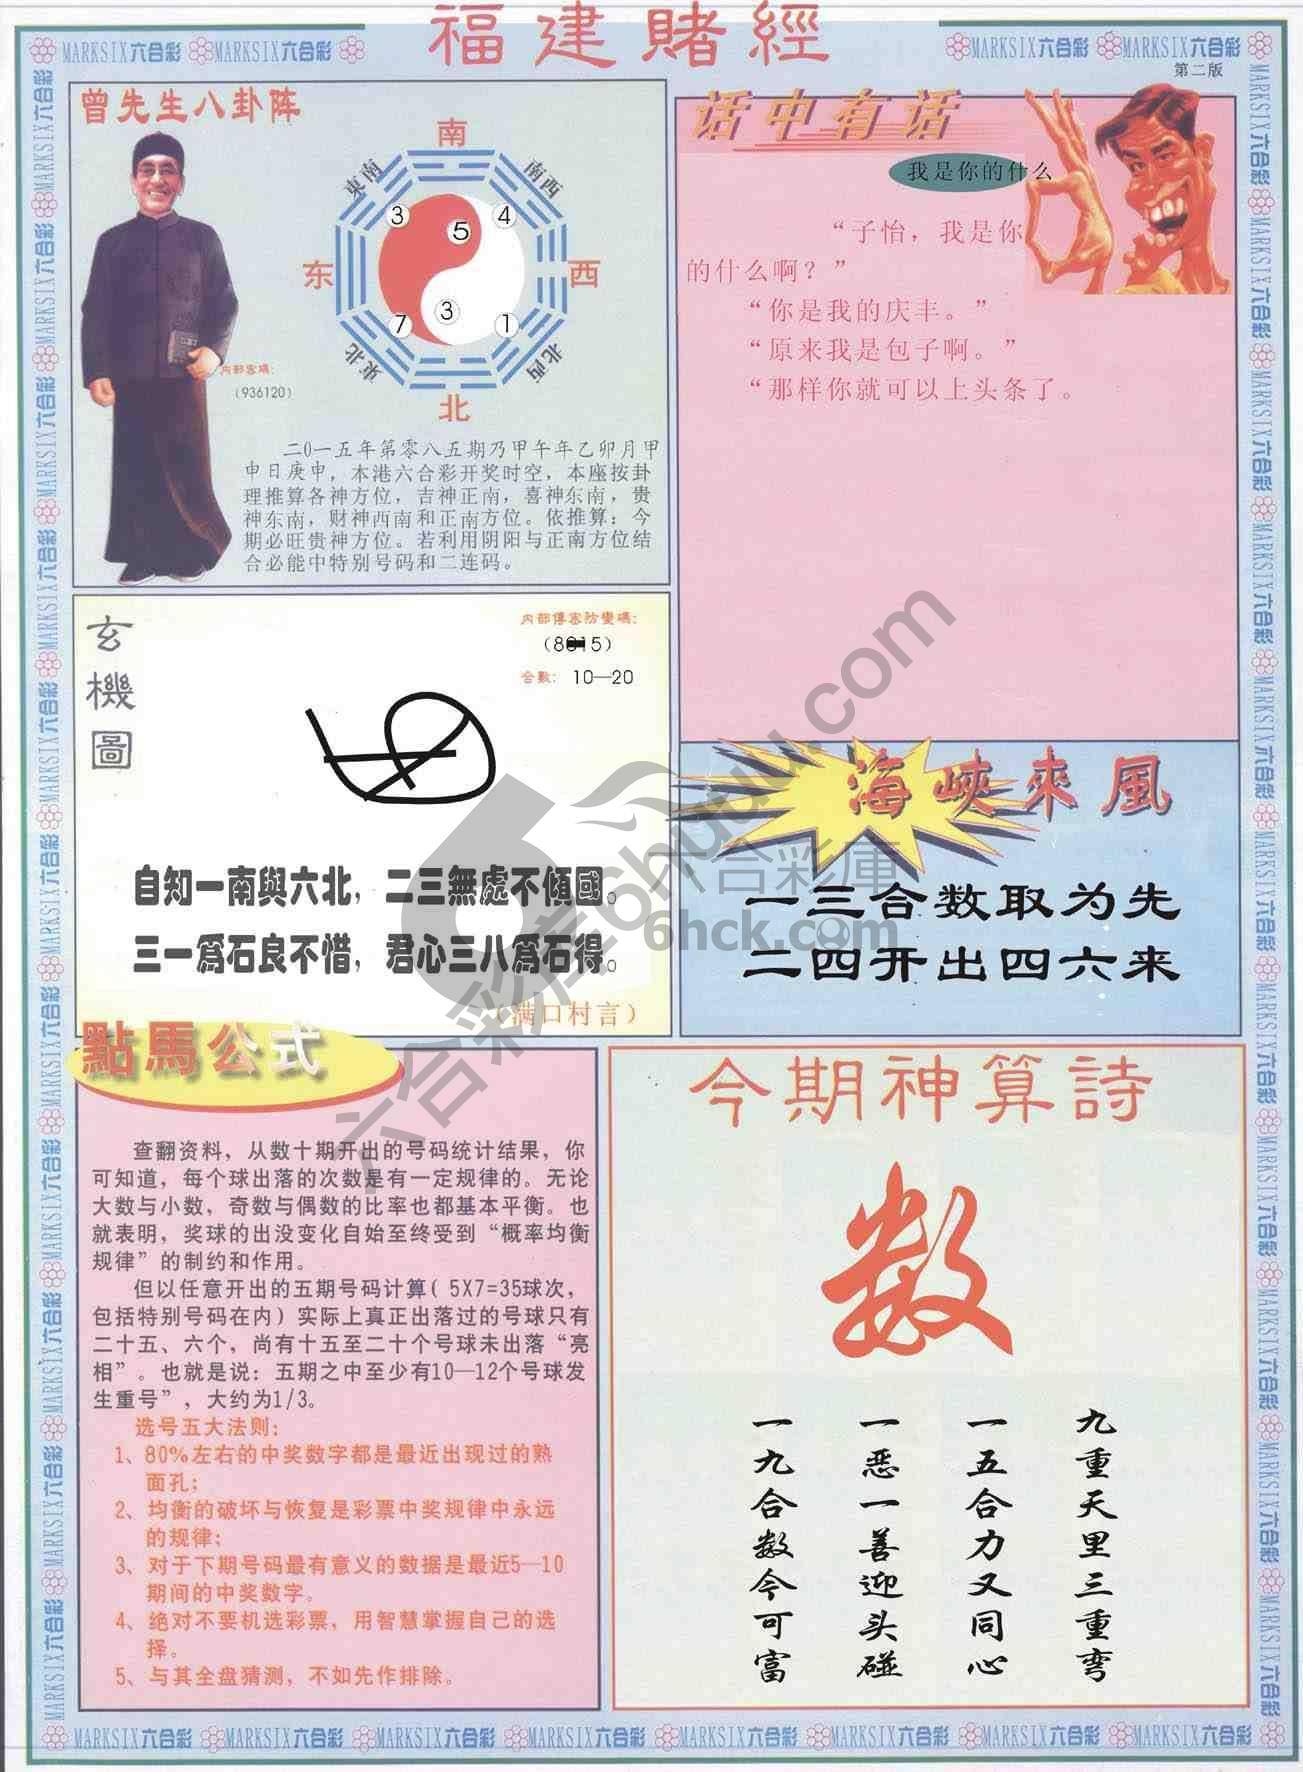 福建賭經
MARKSIX六合彩 MARKSIX六合彩
MARKSIX六合彩 MARKSIX六合彩
第二版
曾先生八卦阵
南
東南
南西
3
5
4
东
西
7
3
1
東北
北西
北
内部密碼:
(936120)
二0一五年第零八五期乃甲午年乙卯月甲
申日庚申，本港六合彩开奖时空，本座按卦
理推算各神方位，吉神正南，喜神东南，贵
神东南，财神西南和正南方位。依推算：今
期必旺贵神方位。若利用阴阳与正南方位结
合必能中特别号码和二连码。
话中有话
我是你的什么
“子怡，我是你
的什么啊？”
“你是我的庆丰。”
“原来我是包子啊。”
“那样你就可以上头条了。
玄機圖
内部傳密防變碼:
合數: 10—20
自知一南與六北，二三無處不傾國。
三一爲石良不惜，君心三八爲石得。
（满口村言）
海峽來風
一三合数取为先
二四开出四六来
六合彩庫
6hck.com
六合彩库6huuu.com
點馬公式
查翻资料，从数十期开出的号码统计结果，你
可知道，每个球出落的次数是有一定规律的。无论
大数与小数，奇数与偶数的比率也都基本平衡。也
就表明，奖球的出没变化自始至终受到“概率均衡
规律”的制约和作用。
但以任意开出的五期号码计算（5X7=35球次，
包括特别号码在内）实际上真正出落过的号球只有
二十五、六个，尚有十五至二十个号球未出落“亮
相”。也就是说：五期之中至少有10—12个号球发
生重号”，大约为1/3。
选号五大法则：
1、80%左右的中奖数字都是最近出现过的熟
面孔；
2、均衡的破坏与恢复是彩票中奖规律中永远
的规律；
3、对于下期号码最有意义的数据是最近5—10
期间的中奖数字。
4、绝对不要机选彩票，用智慧掌握自己的选
择。
5、与其全盘猜测，不如先作排除。
今期神算詩
数
九重天里三重弯
一五合力又同心
一恶一善迎头碰
一九合数今可富
MARKSIX六合彩 MARKSIX六合彩 MARKSIX六合彩 MARKSIX六合彩 MARKSIX六合彩 MARKSIX六合彩 MARKSIX六合彩 MARKSIX六合彩